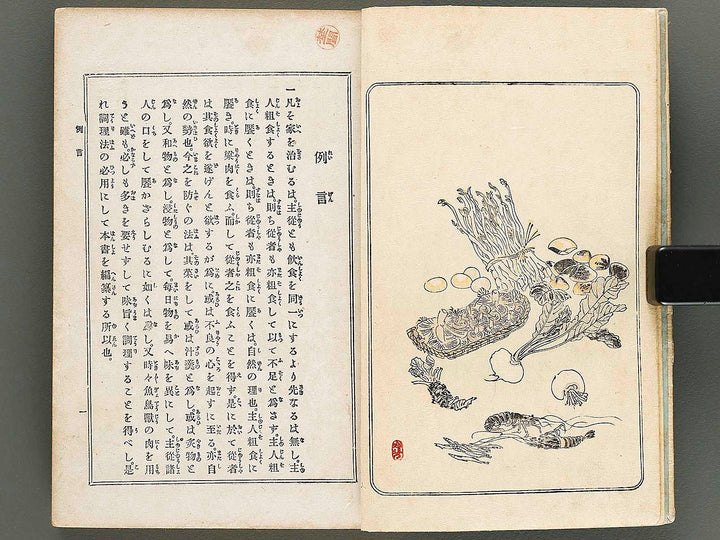 例言
一凡を家を治むるは、主從とも飮食を同一にするより先なるは無し、主
人粗食するときは、則ち從者も亦粗食して以て不足と爲さす、主人粗
食に饜くときは、則ち從者も亦粗食に饜くは、自然の理也、主人粗食に
饜き、時に粱肉を食ふ、而して從者之を食ふことを得す、是に於て從者
は其食欲を遂げんと欲するが爲に、或は不良の心を起すに至る、亦自
然の勢也、今之を防ぐの法は、其菜をして或は汁羹と爲し、或は炙物と
爲し、又和物と爲し、浸物と爲して、每日物を易へ味を異にして、主從諸
人の口をして饜かざらしむるに如くは莫し、又時々魚鳥獸の肉を用
うと雖も、必しも多きを要せずして味旨く調理することを得べし、是
れ調理法の必用にして本書を編纂する所以也。
例言
一